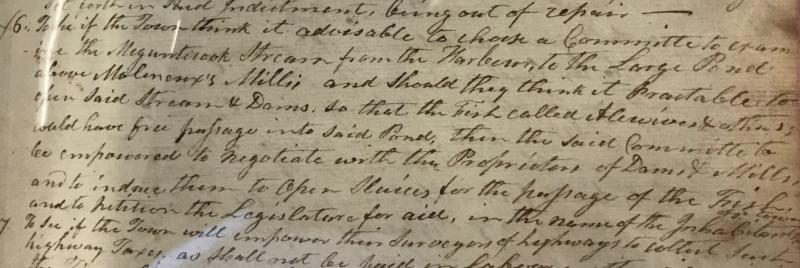 set forth in said Indictment, being out of repair —
6. To see if the Town think it advisable to choose a Committee to exam
ine the Megunticook Stream from the Harbour, to the Large Pond
above Molineux's Mills, and should they think it Practable to
open said Stream & Dams, so that the Fish called Alewives & others
would have free passage into said Pond, then the said Committee to
be empowered to negotiate with the Proprietors of Dams & Mills,
and to induce them to open Sluices for the passage of the Fish
and to petition the Legislature for aid, in the name of the Inhabitants
of the Town
7 To see if the Town will empower their Surveyors of highways to collect such
highway Taxes, as shall not be paid in Labour